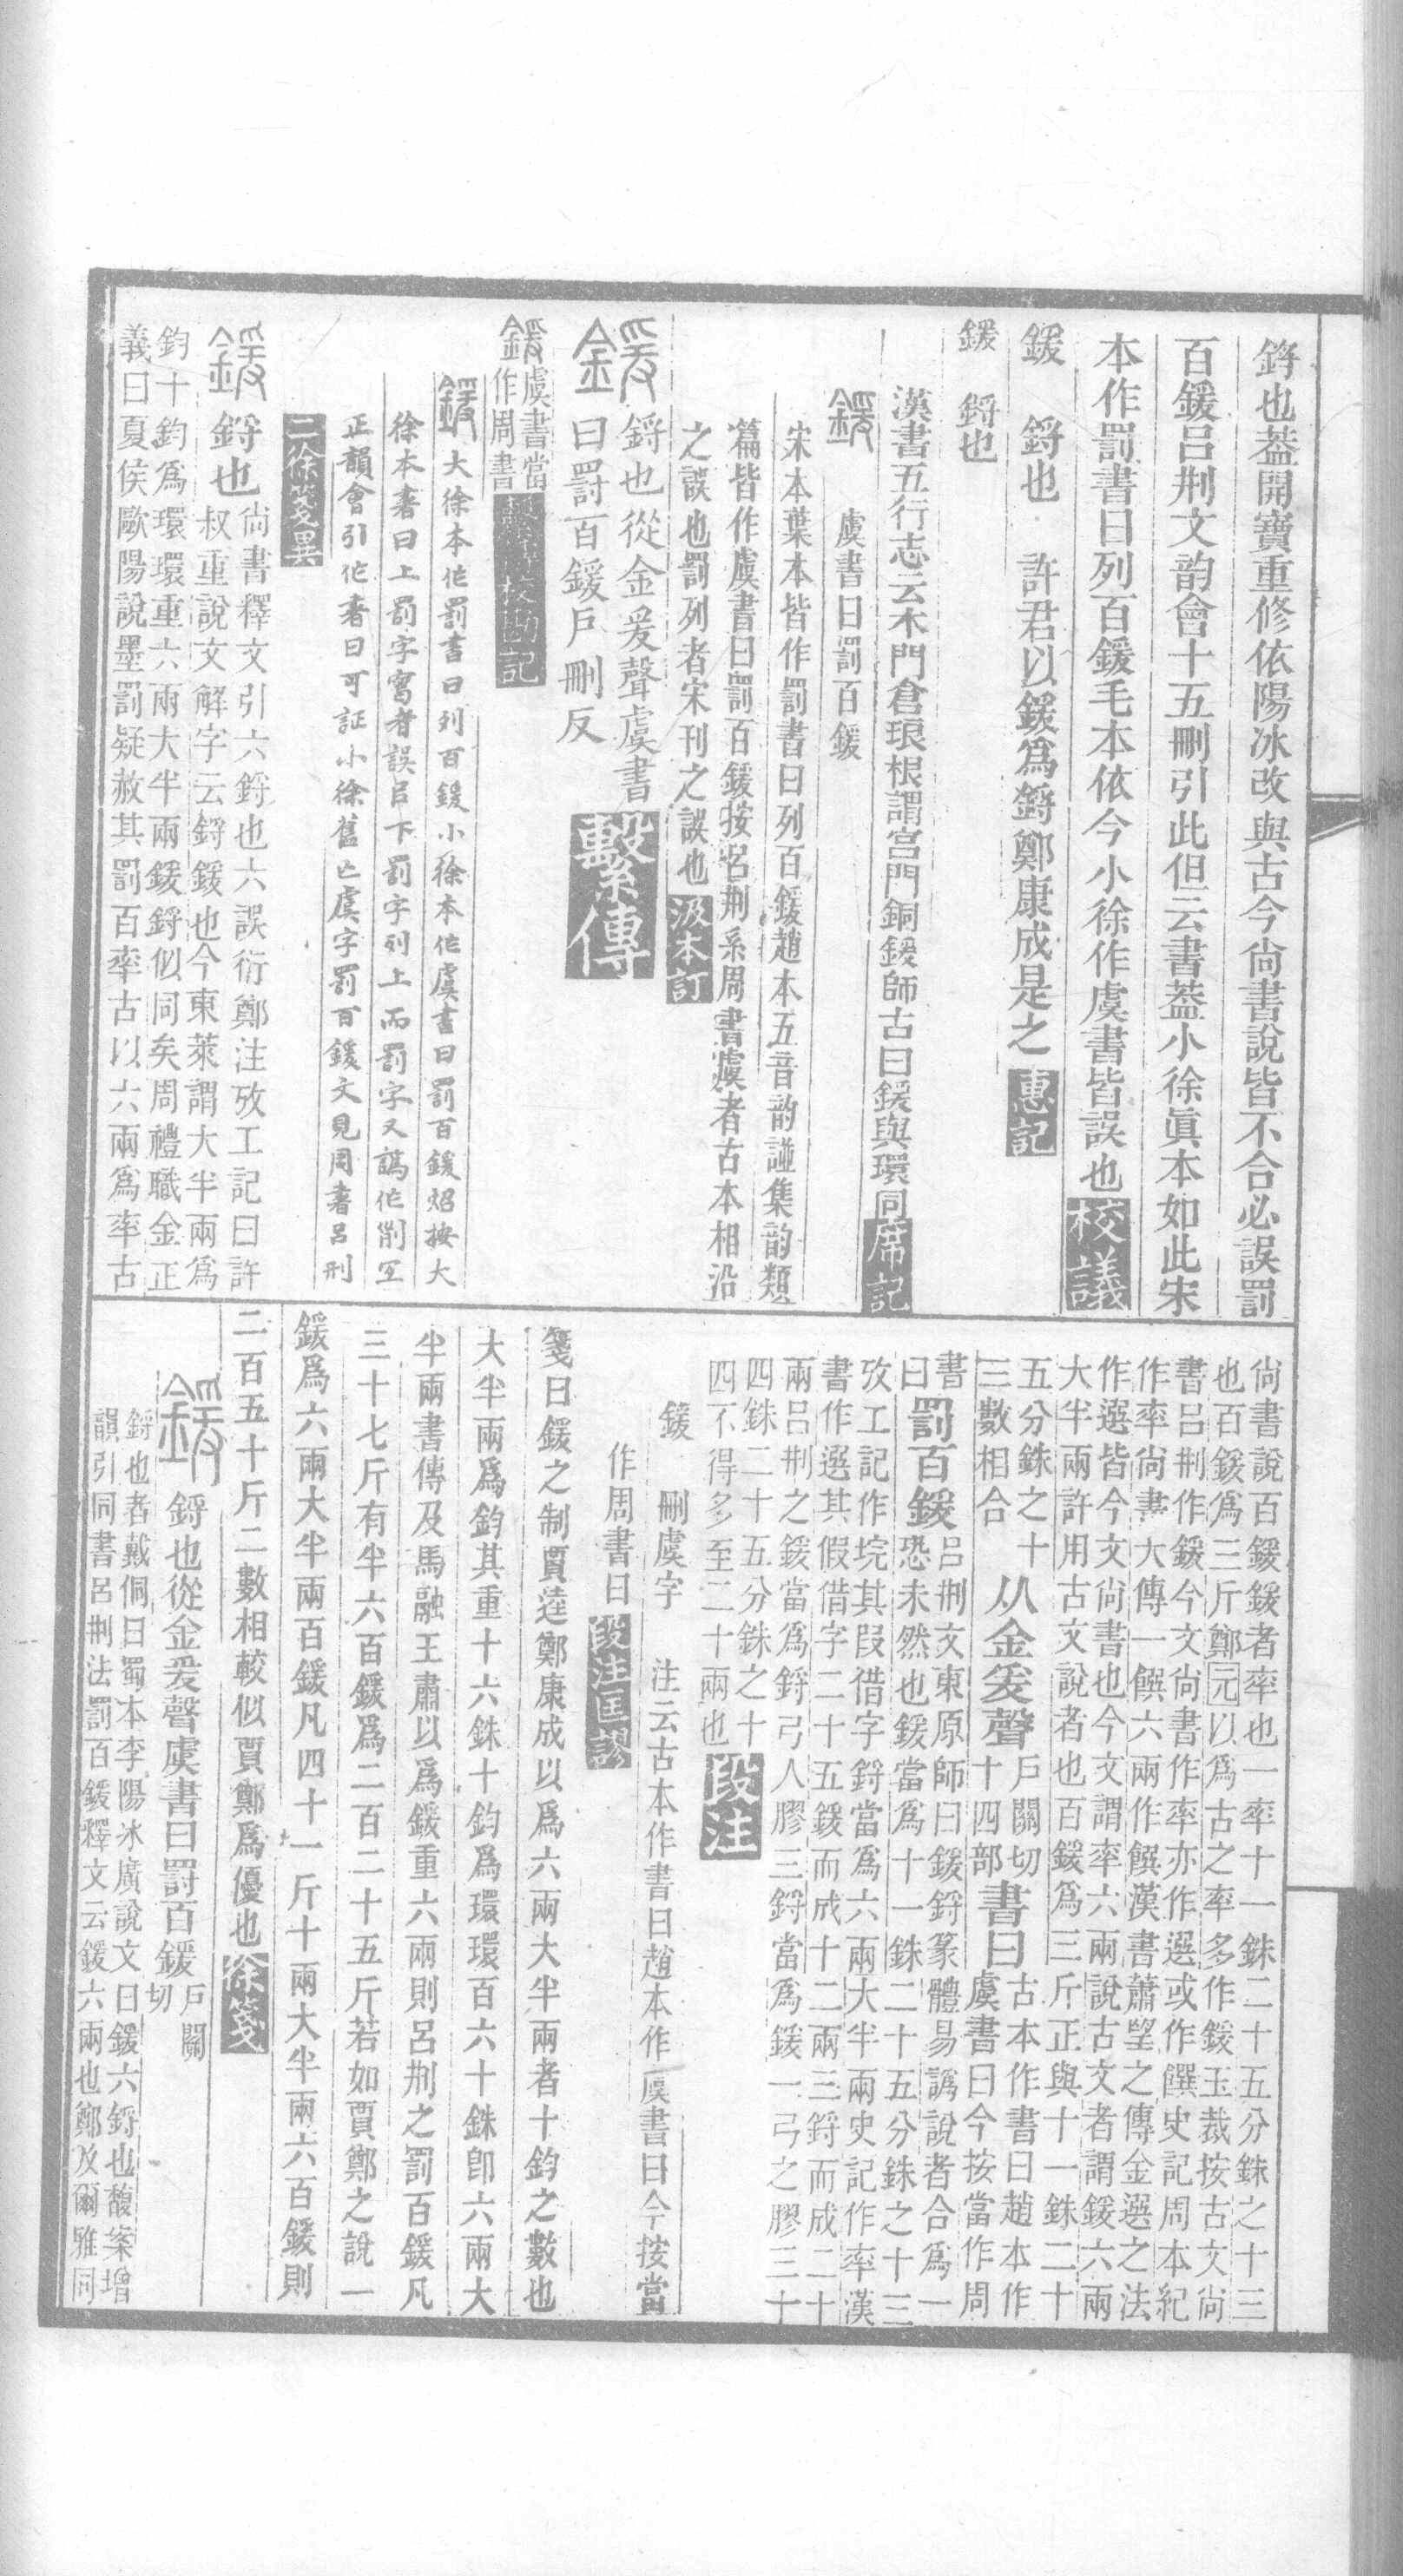 鋝也葢開寶重修依陽冰改與古今尙書說皆不合必誤罰
百鍰呂荆文韵會十五刪引此但云書葢小徐眞本如此宋
本作罰書曰列百鍰毛本依今小徐作虞書皆誤也校議
鍰　鋝也　許君以鍰爲鋝鄭康成是之惠記
鍰　鋝也
漢書五行志云木門倉琅根謂宮門銅鍰師古曰鍰與環同席記
鍰　虞書曰罰百鍰
宋本葉本皆作罰書曰列百鍰趙本五音韵譜集韵類
篇皆作虞書曰罰百鍰按呂荆系周書虞者古本相沿
之誤也罰列者宋刊之誤也汲本訂
鍰　鋝也從金爰聲虞書
曰罰百鍰戶刪反　繫傳
鍰虞書當
作周書繫傳校勘記
鍰大徐本作罰書曰列百鍰小徐本作虞書曰罰百鍰炤按大
徐本書曰上罰字寫者誤百下罰字列上而罰字又譌作劂至
正韻會引作書曰可証小徐舊亡虞字罰百鍰文見周書呂刑
二徐箋異
鍰　鋝也尙書釋文引六鋝也六誤衍鄭注攷工記曰許
叔重說文解字云鋝鍰也今東萊謂大半兩爲
鈞十鈞爲環環重六兩大半兩鍰鋝似同矣周禮職金正
義曰夏侯歐陽說墨罰疑赦其罰百率古以六兩爲率古
尙書說百鍰鍰者率也一率十一銖二十五分銖之十三
也百鍰爲三斤鄭元以爲古之率多作鍰玉裁按古文尙
書呂荆作鍰今文尙書作率亦作選或作饌史記周本紀
作率尙書大傳一饌六兩作饌漢書蕭望之傳金選之法
作選皆今文尙書也今文謂率六兩說古文者謂鍰六兩
大半兩許用古文說者也百鍰爲三斤正與十一銖二十
五分銖之十
三數相合　从金爰聲戶關切
十四部書曰古本作書曰趙本作
虞書曰今按當作周
書
曰罰百鍰呂荆文東原師曰鍰鋝篆體易譌說者合爲一
恐未然也鍰當爲十一銖二十五分銖之十三
攷工記作垸其叚借字鋝當爲六兩大半兩史記作率漢
書作選其假借字二十五鍰而成十二兩三鋝而成二十
兩呂荆之鍰當爲鋝弓人膠三鋝當爲鍰一弓之膠三十
四銖二十五分銖之十
四不得多至二十兩也段注
鍰　刪虞字　注云古本作書曰趙本作虞書曰今按當
作周書曰段注匡謬
箋曰鍰之制賈逵鄭康成以爲六兩大半兩者十鈞之數也
大半兩爲鈞其重十六銖十鈞爲環環百六十銖卽六兩大
半兩書傳及馬融王肅以爲鍰重六兩則呂荆之罰百鍰凡
三十七斤有半六百鍰爲二百二十五斤若如賈鄭之說一
鍰爲六兩大半兩百鍰凡四十一斤十兩大半兩六百鍰則
二百五十斤二數相較似賈鄭爲優也徐箋
鍰　鋝也從金爰聲虞書曰罰百鍰戶關
切
鋝也者戴侗曰蜀本李陽冰廣說文曰鍰六鋝也馥案增
韻引同書呂荆法罰百鍰釋文云鍰六兩也鄭及爾雅同